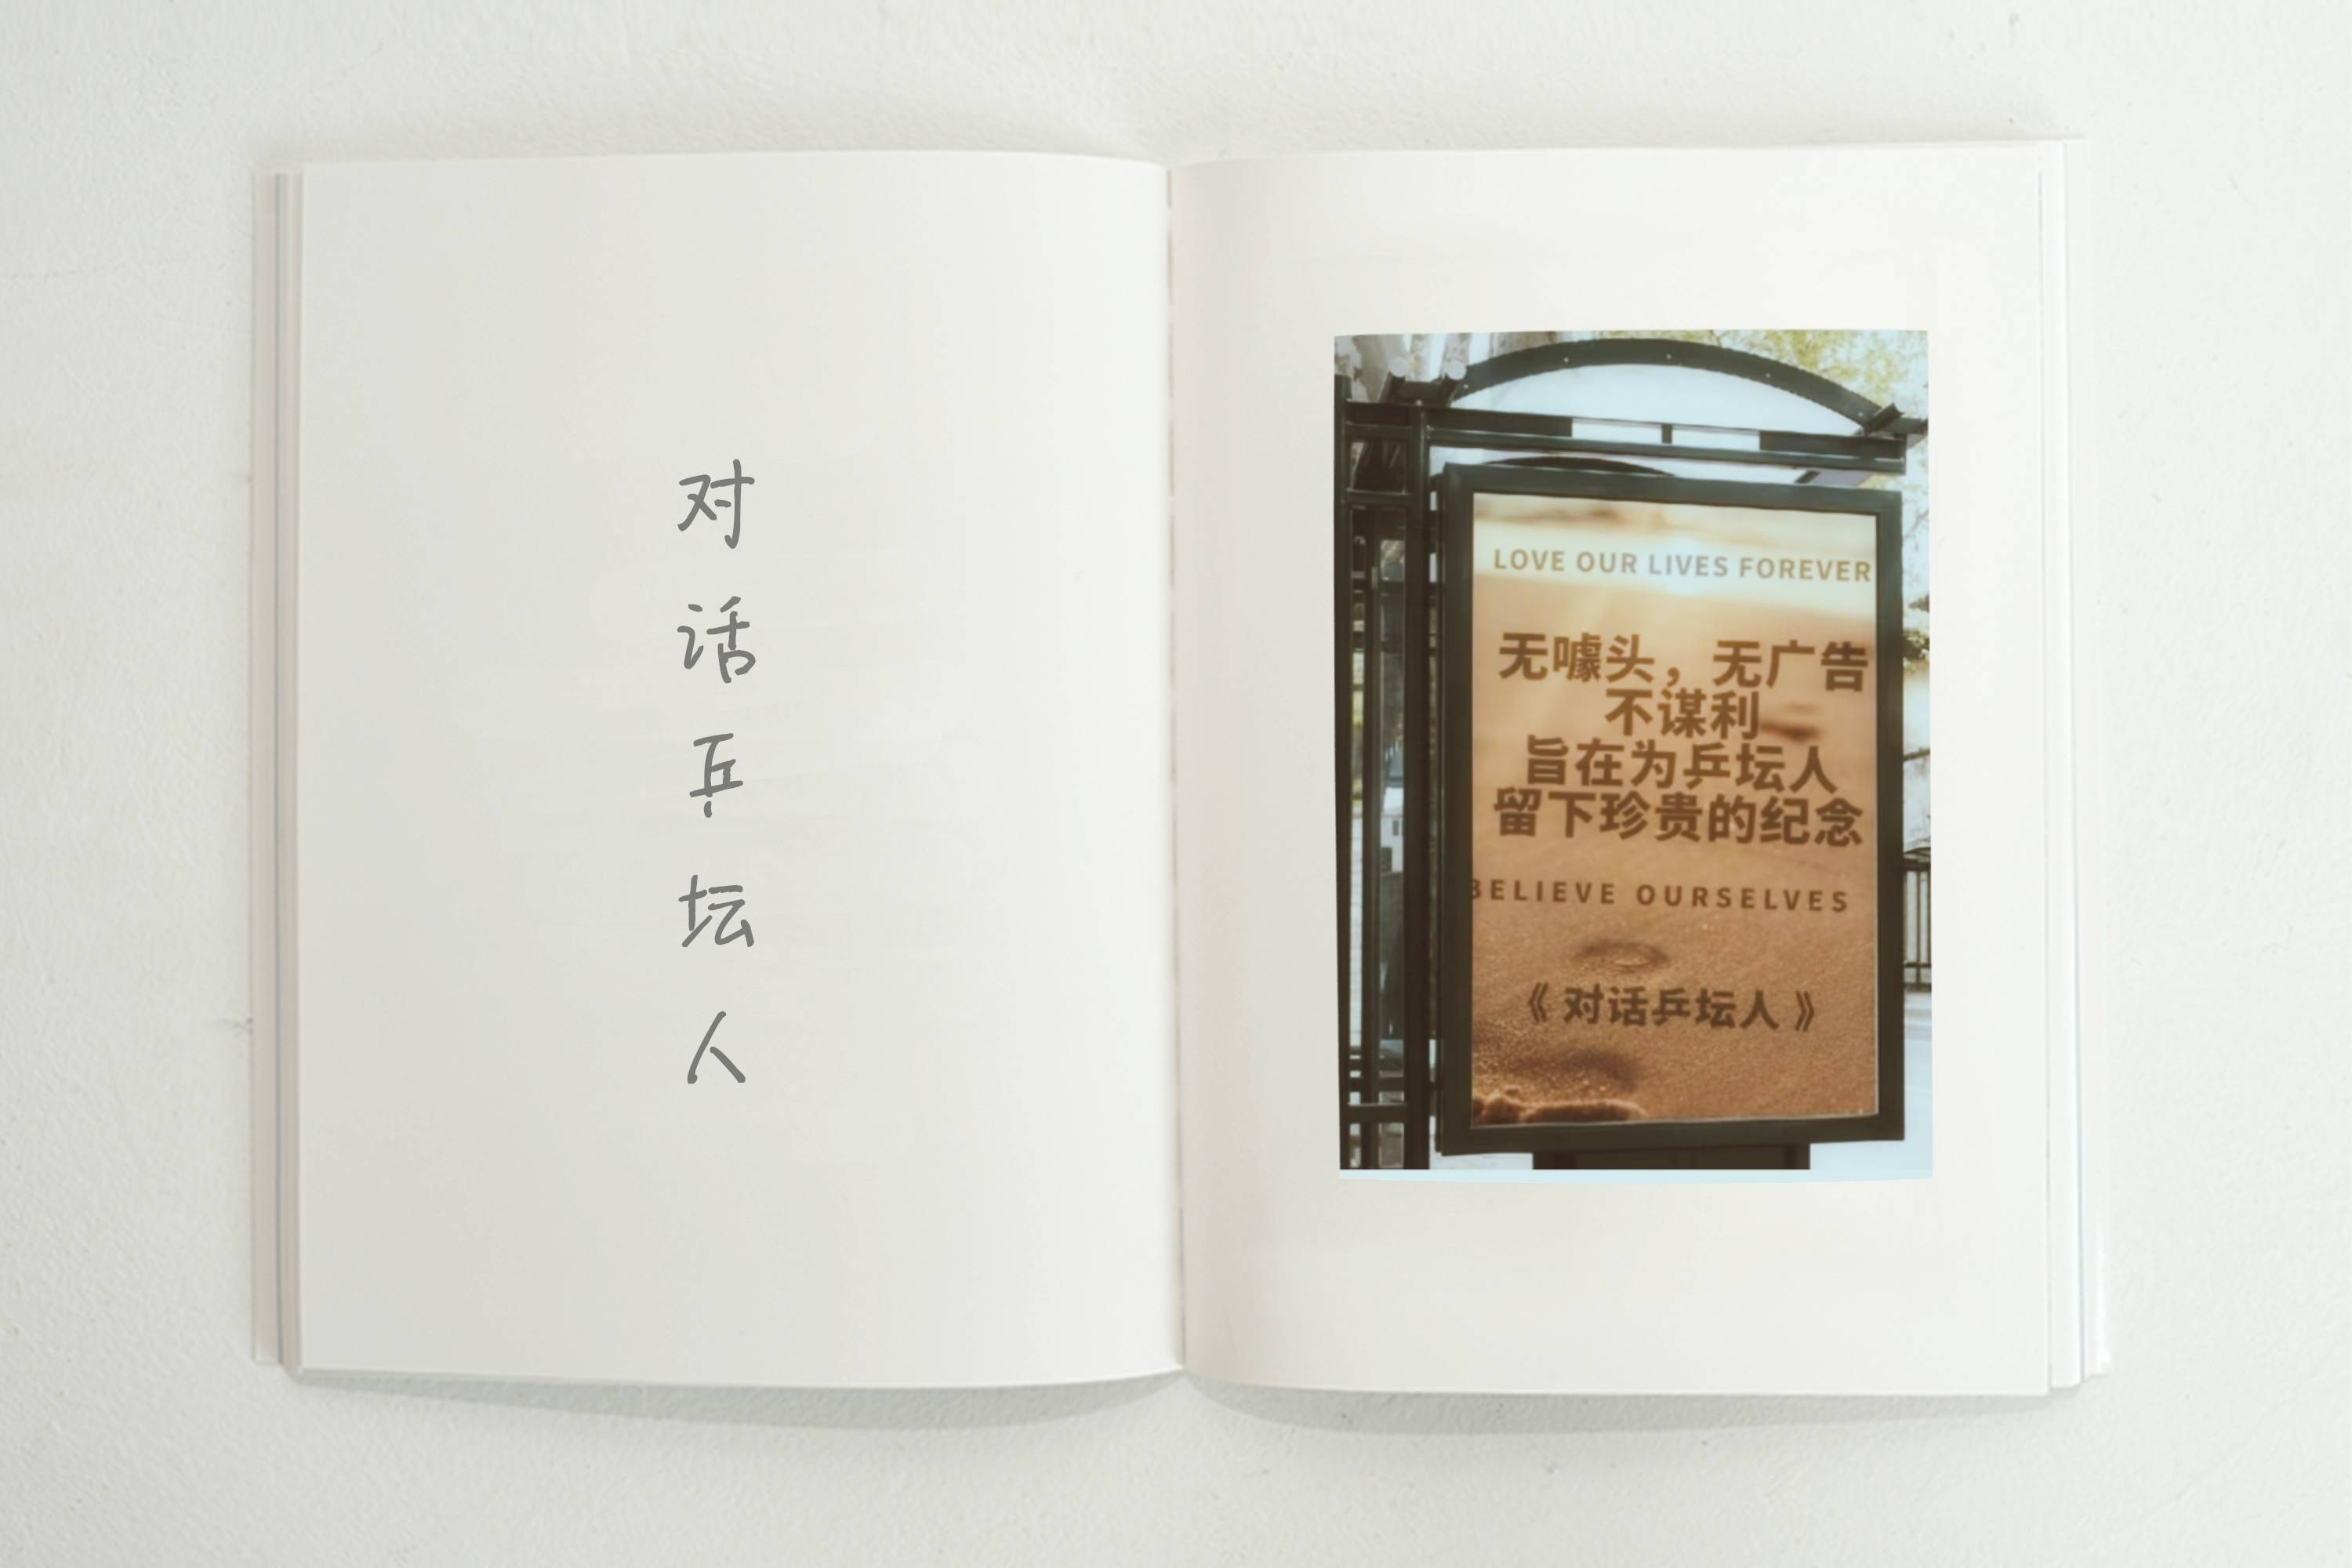 对话乒坛人
LOVE OUR LIVES FOREVER
无噱头，无广告
不谋利
旨在为乒坛人
留下珍贵的纪念
BELIEVE OURSELVES
《对话乒坛人》